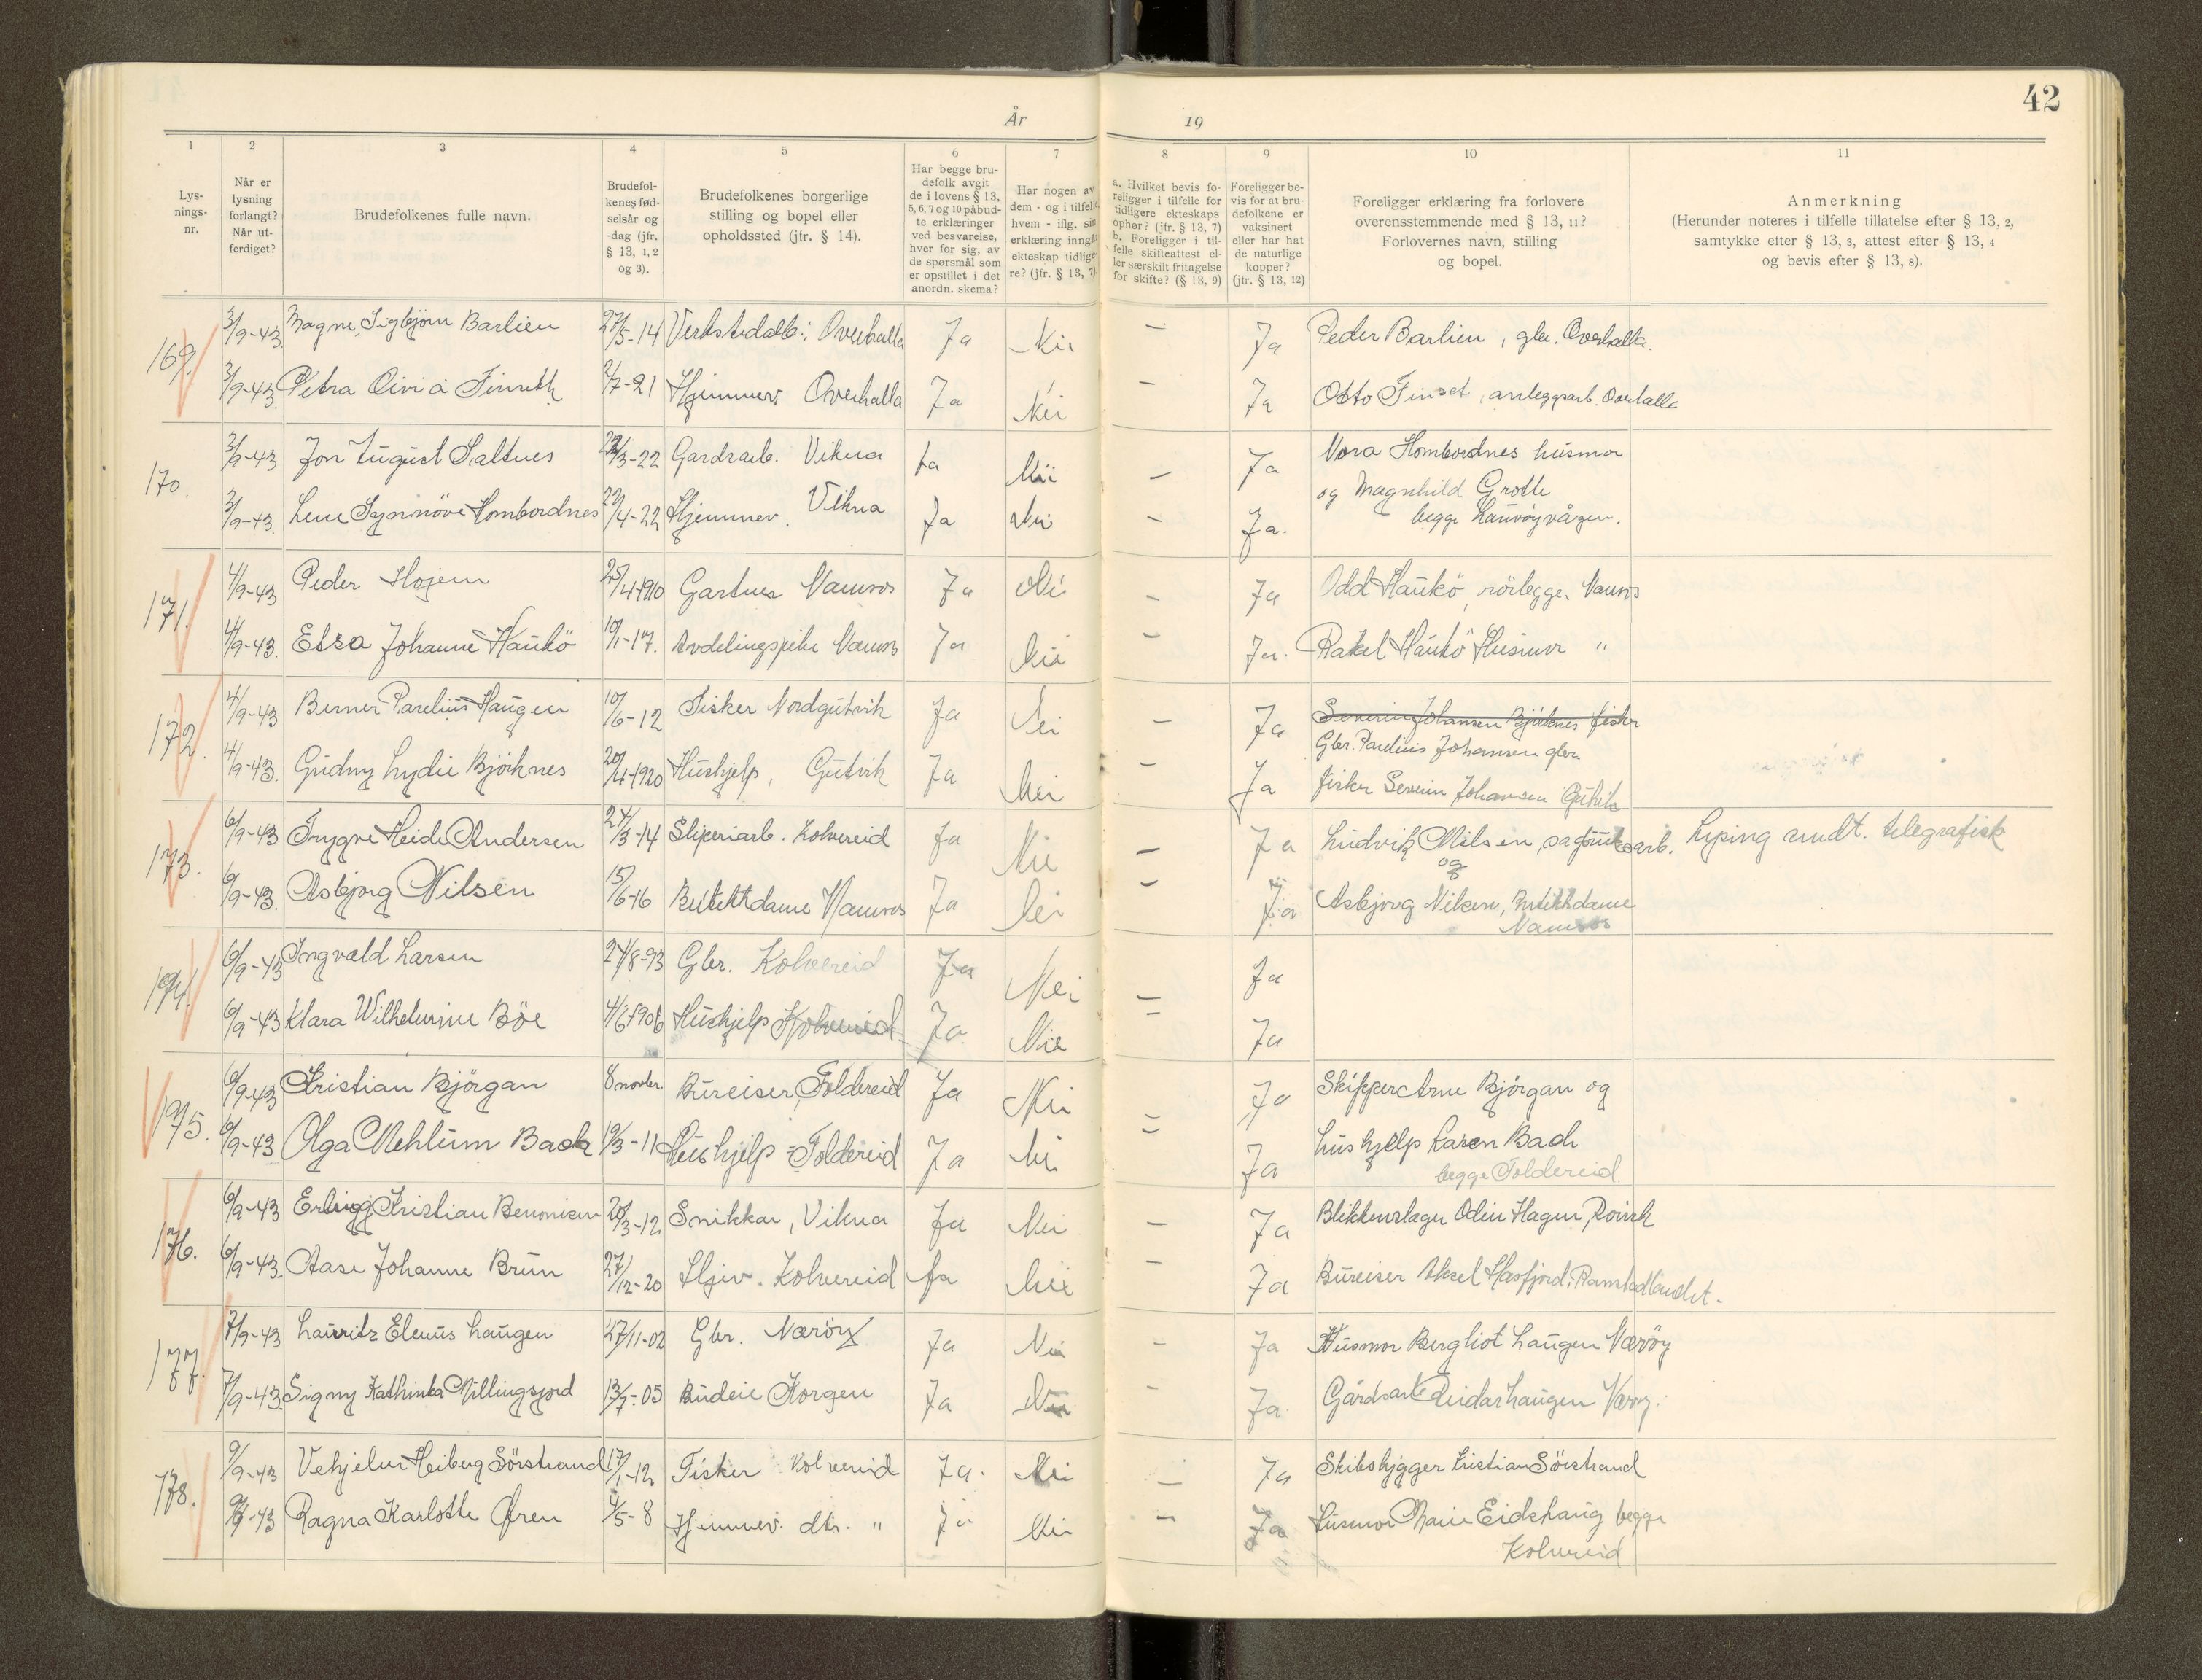 42
År 19
1 2 3 4 5 6 7 8 9 10 11
Lys-
nings-
nr.
Når er
lysning
forlangt?
Når ut-
ferdiget?
Brudefolkenes fulle navn.
Brudefol-
kenes fød-
selsår og
-dag (jfr.
§ 13, 1, 2
og 3).
Brudefolkenes borgerlige
stilling og bopel eller
opholdssted (jfr. § 14).
Har begge bru-
defolk avgit
de i lovens § 13,
5, 6, 7 og 10 påbud-
te erklæringer
ved besvarelse,
hver for sig, av
de spørsmål som
er opstillet i det
anordn. skema?
Har nogen av
dem - og i tilfelle
hvem - iflg. sin
erklæring inngå
ekteskap tidlige-
re? (jfr. § 18, 7)
a. Hvilket bevis fo-
religger i tilfelle for
tidligere ekteskaps
ophør? (jfr. § 13, 7)
b. Foreligger i til-
felle skifteattest el-
ler særskilt fritagelse
for skifte? (§ 13, 9)
Foreligger be-
vis for at bru-
defolkene er
vaksinert
eller har hat
de naturlige
kopper?
(jfr. § 13, 12)
Foreligger erklæring fra forlovere
overensstemmende med § 13, 11?
Forlovernes navn, stilling
og bopel.
Anmerkning
(Herunder noteres i tilfelle tillatelse efter § 13, 2,
samtykke efter § 13, 3, attest efter § 13, 4
og bevis efter § 13, 8).
169. 3/9-43. Magne Sigbjørn Barlien 27/5-14 Verkstedarb.; Overhalla Ja Nei — Ja Peder Barlien, gbr. Overhalla.
3/9-43. Petra Finseth 2/7-21 Hjemmev. Overhalla Ja Nei — Ja Otto Finset, anleggsarb. Overhalla
170. 3/9-43 Jon August Saltnes /3-22 Gardsarb. Vikna Ja Nei — Ja Nora Hombordnes husmor
og Magnhild Groth
3/9-43. Lene Synnöve Hombordnes 22/4-22 Hjemmev. Vikna Ja Nei — Ja.
begge Lauvøyvågen.
171. 4/9-43 Peder Hojem 25/4-1910 Gartner Namsos Ja Nei — Ja Odd Haukö, rörlegger Namsos
4/9-43. Elsa Johanne Haukö 10/1-17. Avdelingspike Namsos Ja Nei — Ja. Rakel Haukö Husmor "
172. 4/9-43 Berner Parelius Haugen 10/6-12 Fisker Nordgutvik Ja Nei — Ja Severin Johansen Bjørknes fisker
Gbr. Paulius Johansen gbr.
4/9-43. Gudny Lydie Björknes 20/4-1920 Hushjelp, Gutvik Ja Nei — Ja Fisker Severin Johansen Gutvik
173. 6/9-43 Trygve Heide Andersen 24/3-14 Sliperiarb. Kolvereid Ja Nei — Ja Ludvik Nilsen, sagbruksarb. Lysing sendt. telegrafisk
og
6/9-43. Asbjørg Nilsen 15/6-16 Butikkdame Namsos Ja Nei — Ja Asbjørg Nilsen, Butikkdame
Namsos
174. 6/9-43 Ingvald Larsen 24/8-93 Gbr. Kolvereid Ja Nei — Ja
6/9-43 Klara Wilhelmine Böe 4/6-1906 Hushjelp Kolvereid Ja Nei — Ja
175. 6/9-43 Kristian Björgan 8 novbr. Bureiser, Foldereid Ja Nei — Ja Skipper Arne Björgan og
6/9-43 Olga Mehlum Bach 19/3-11 Hushjelp - Foldereid Ja Nei — Ja hushjelp Karen Bach
begge Foldereid
176. 6/9-43 Erling Kristian Benonisen 20/3-12 Snikkar, Vikna Ja Nei — Ja Blikkenslager Odin Hagen, Rørvik
6/9-43. Aase Johanne Brun 27/12-20 Hjev. Kolvereid Ja Nei — Ja Bureiser Aksel Hasfjord, Ramstadlandet.
177. 7/9-43 Lauritz Elenus Laugen 27/11-02 Gbr. Nærøy Ja Nei — Ja Husmor Bergliot Laugen Nærøy
7/9-43. Signy Kathinka Villingsfjord 13/7-05 Budeie Korgen Ja Nei — Ja. Gårdsarb. Reidar Laugen Nærøy.
178. 9/9-43 Vehjelm Heiberg Sörstrand 17/1-12 Fisker Kolvereid Ja. Nei — Ja Skibsbygger Kristian Sörstrand
9/9-43 Ragna Karlotte Øren 4/5-8 Hjemmev. dtr. " Ja Nei — Ja Husmor Marie Eidshaug begge
Kolvereid